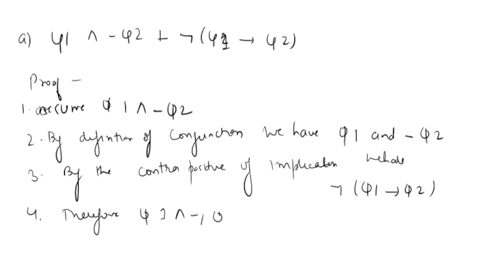 a) φ1 ∧ -φ2 ⊢ ¬(φ1 → φ2)
Proof -
1. assume φ1 ∧ -φ2
2. By definition of conjunction we have φ1 and -φ2
3. By the contra positive of implication we have
¬(φ1 → φ2)
4. Therefore